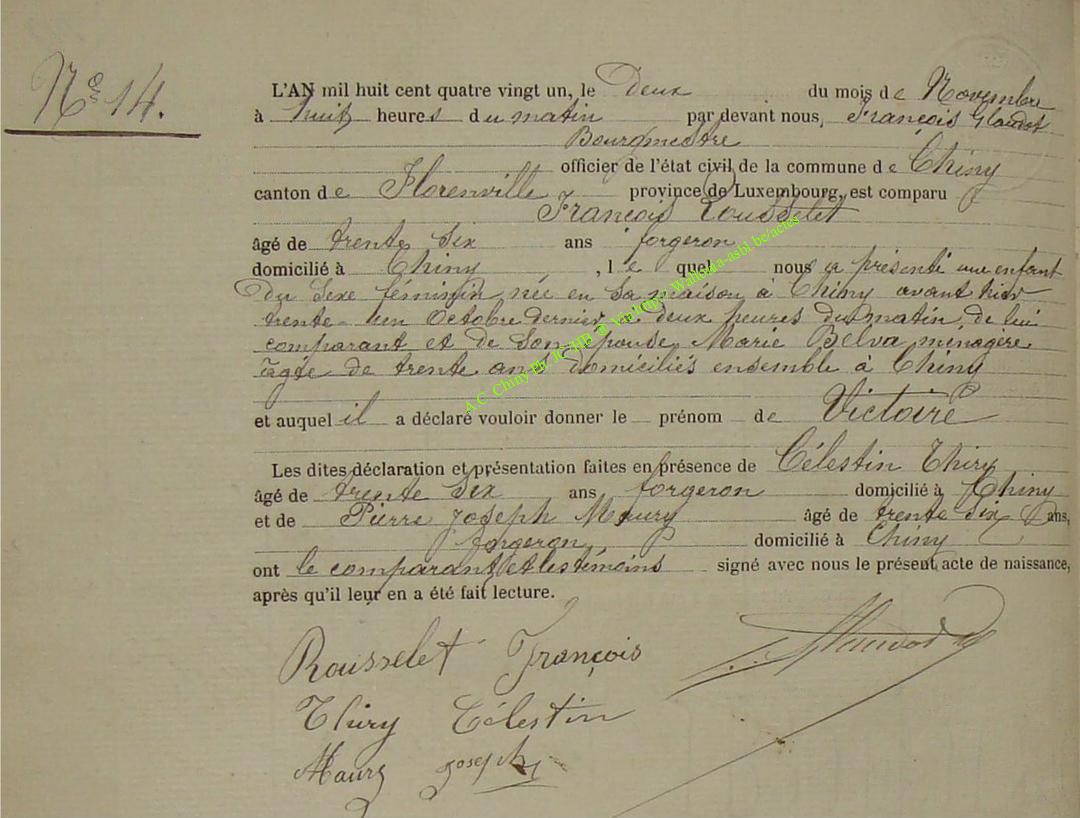 N° 14.
L'AN mil huit cent quatre vingt un, le Deux du mois de Novembre
à huit heures du matin par devant nous, François Glaudot
Bourgmestre
officier de l'état civil de la commune de Chiny
canton de Florenville province de Luxembourg, est comparu
François Rousselet
âgé de trente six ans forgeron
domicilié à Chiny, le quel nous a présenté une enfant
du sexe féminin née en sa maison à Chiny avant hier
trente-un Octobre dernier à deux heures du matin, de lui
comparant et de son épouse Marie Belva, ménagère
âgée de trente ans domiciliés ensemble à Chiny
et auquel il a déclaré vouloir donner le prénom de Victoire
Les dites déclaration et présentation faites en présence de Célestin Thiry
âgé de trente six ans forgeron domicilié à Chiny
et de Pierre Joseph Maury âgé de trente six ans,
forgeron domicilié à Chiny
ont le comparant et les témoins signé avec nous le présent acte de naissance,
après qu'il leur en a été fait lecture.
Rousselet François
F. Glaudot
Thiry Célestin
Maury Joseph
A.C Chiny Ph. JC HB © Visages Wallonia-asbl.be/actes